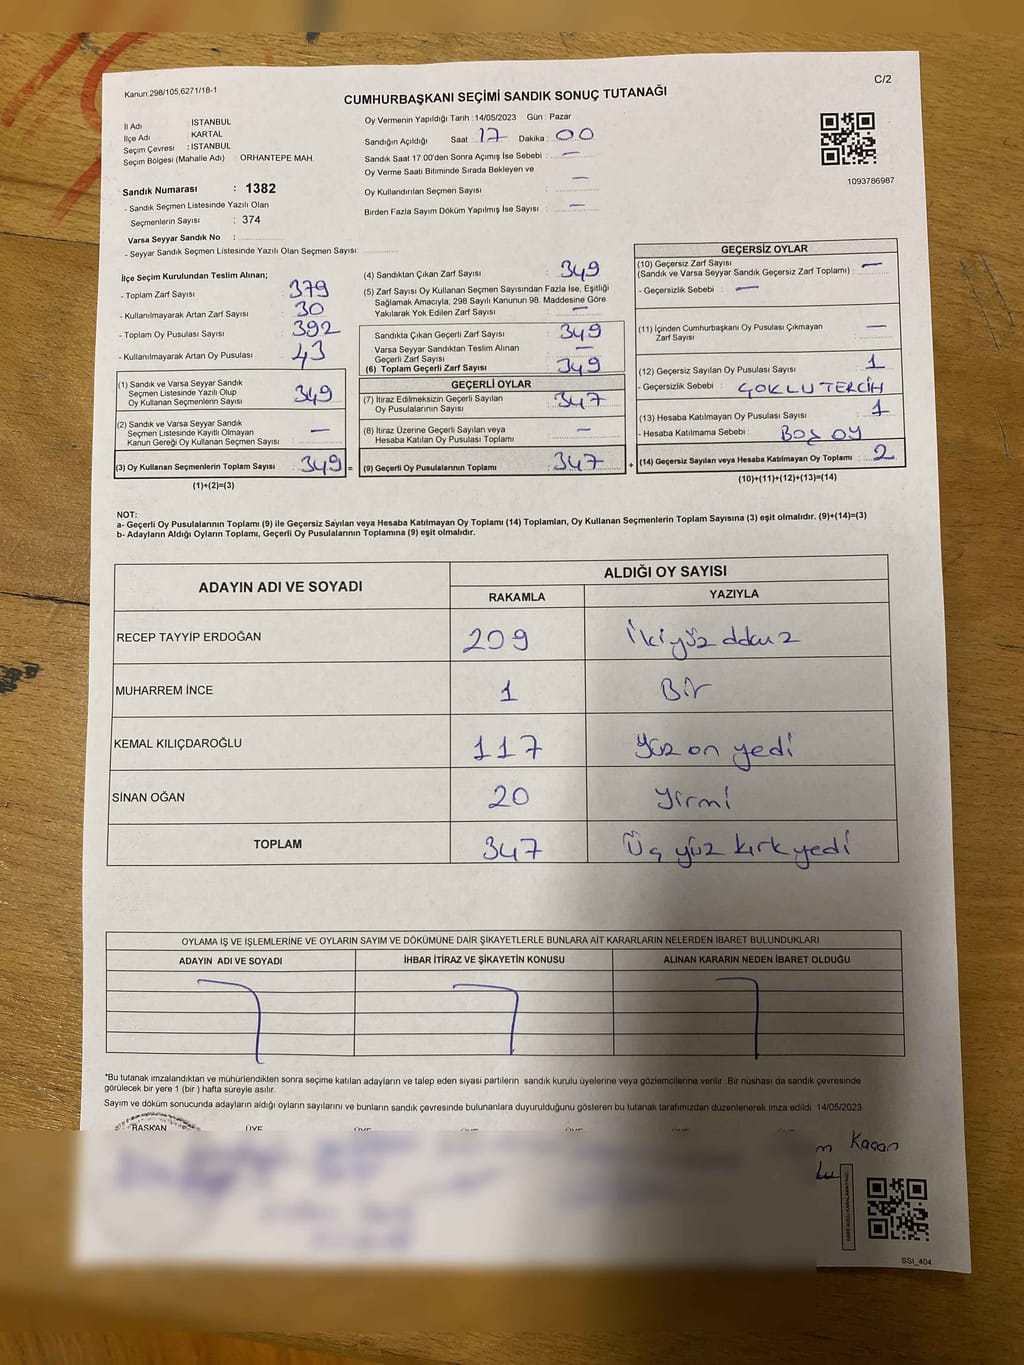 Kanun:298/105,6271/18-1
C/2
CUMHURBAŞKANI SEÇİMİ SANDIK SONUÇ TUTANAĞI
İl Adı : İSTANBUL
İlçe Adı : KARTAL
Seçim Çevresi : İSTANBUL
Seçim Bölgesi (Mahalle Adı) : ORHANTEPE MAH.
Sandık Numarası : 1382
- Sandık Seçmen Listesinde Yazılı Olan
Seçmenlerin Sayısı : 374
Varsa Seyyar Sandık No :
- Seyyar Sandık Seçmen Listesinde Yazılı Olan Seçmen Sayısı:
Oy Vermenin Yapıldığı Tarih : 14/05/2023 Gün : Pazar
Sandığın Açıldığı Saat : 17 Dakika : 00
Sandık Saat 17:00'den Sonra Açımış İse Sebebi : —
Oy Verme Saati Bitiminde Sırada Bekleyen ve
Oy Kullandırılan Seçmen Sayısı : —
Birden Fazla Sayım Döküm Yapılmış İse Sayısı : —
1093786987
İlçe Seçim Kurulundan Teslim Alınan;
- Toplam Zarf Sayısı : 379
- Kullanılmayarak Artan Zarf Sayısı : 30
- Toplam Oy Pusulası Sayısı : 392
- Kullanılmayarak Artan Oy Pusulası : 43
(1) Sandık ve Varsa Seyyar Sandık
Seçmen Listesinde Yazılı Olup
Oy Kullanan Seçmenlerin Sayısı : 349
(2) Sandık ve Varsa Seyyar Sandık
Seçmen Listesinde Kayıtlı Olmayan
Kanun Gereği Oy Kullanan Seçmen Sayısı : —
(3) Oy Kullanan Seçmenlerin Toplam Sayısı : 349 =
(1)+(2)=(3)
(4) Sandıktan Çıkan Zarf Sayısı : 349
(5) Zarf Sayısı Oy Kullanan Seçmen Sayısından Fazla İse, Eşitliği
Sağlamak Amacıyla, 298 Sayılı Kanunun 98. Maddesine Göre
Yakılarak Yok Edilen Zarf Sayısı : —
Sandıkta Çıkan Geçerli Zarf Sayısı : 349
Varsa Seyyar Sandıktan Teslim Alınan
Geçerli Zarf Sayısı : —
(6) Toplam Geçerli Zarf Sayısı : 349
GEÇERLİ OYLAR
(7) İtiraz Edilmeksizin Geçerli Sayılan
Oy Pusulalarının Sayısı : 347
(8) İtiraz Üzerine Geçerli Sayılan veya
Hesaba Katılan Oy Pusulası Toplamı : —
(9) Geçerli Oy Pusulalarının Toplamı : 347 +
GEÇERSİZ OYLAR
(10) Geçersiz Zarf Sayısı
(Sandık ve Varsa Seyyar Sandık Geçersiz Zarf Toplamı) : —
- Geçersizlik Sebebi : —
(11) İçinden Cumhurbaşkanı Oy Pusulası Çıkmayan
Zarf Sayısı : —
(12) Geçersiz Sayılan Oy Pusulası Sayısı : 1
- Geçersizlik Sebebi : ÇOKLU TERCİH
(13) Hesaba Katılmayan Oy Pusulası Sayısı : 1
- Hesaba Katılmama Sebebi : BOŞ OY
(14) Geçersiz Sayılan veya Hesaba Katılmayan Oy Toplamı : 2
(10)+(11)+(12)+(13)=(14)
NOT:
a- Geçerli Oy Pusulalarının Toplamı (9) ile Geçersiz Sayılan veya Hesaba Katılmayan Oy Toplamı (14) Toplamları, Oy Kullanan Seçmenlerin Toplam Sayısına (3) eşit olmalıdır. (9)+(14)=(3)
b- Adayların Aldığı Oyların Toplamı, Geçerli Oy Pusulalarının Toplamına (9) eşit olmalıdır.
ADAYIN ADI VE SOYADI
ALDIĞI OY SAYISI
RAKAMLA YAZIYLA
RECEP TAYYİP ERDOĞAN 209 İkiyüz dokuz
MUHARREM İNCE 1 Bir
KEMAL KILIÇDAROĞLU 117 Yüz on yedi
SİNAN OĞAN 20 Yirmi
TOPLAM 347 Üç yüz kırk yedi
OYLAMA İŞ VE İŞLEMLERİNE VE OYLARIN SAYIM VE DÖKÜMÜNE DAİR ŞİKAYETLERLE BUNLARA AİT KARARLARIN NELERDEN İBARET BULUNDUKLARI
ADAYIN ADI VE SOYADI İHBAR İTİRAZ VE ŞİKAYETİN KONUSU ALINAN KARARIN NEDEN İBARET OLDUĞU
*Bu tutanak imzalandıktan ve mühürlendikten sonra seçime katılan adayların ve talep eden siyasi partilerin sandık kurulu üyelerine veya gözlemcilerine verilir. Bir nüshası da sandık çevresinde
görülecek bir yere 1 (bir ) hafta süreyle asılır.
Sayım ve döküm sonucunda adayların aldığı oyların sayılarını ve bunların sandık çevresinde bulunanlara duyurulduğunu gösteren bu tutanak tarafımızdan düzenlenerek imza edildi. 14/05/2023
BAŞKAN ÜYE
Kaçan
SSI_404